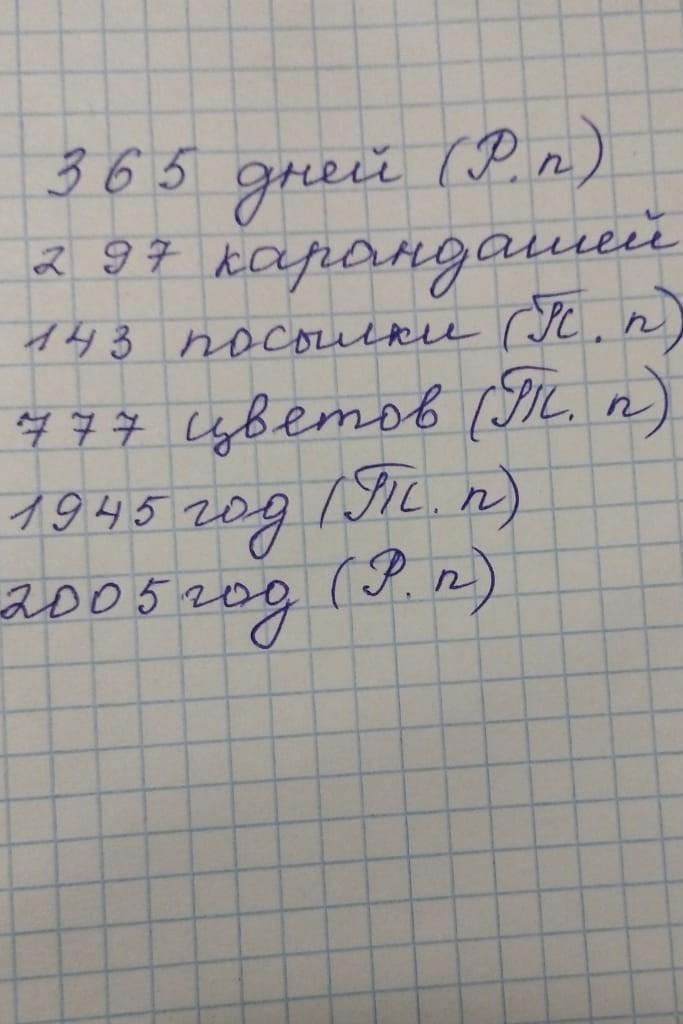 365 дней (Р. п)
297 карандашей
143 посылки (П. п)
777 цветов (Т. п)
1945 год (Т. п)
2005 год (Р. п)